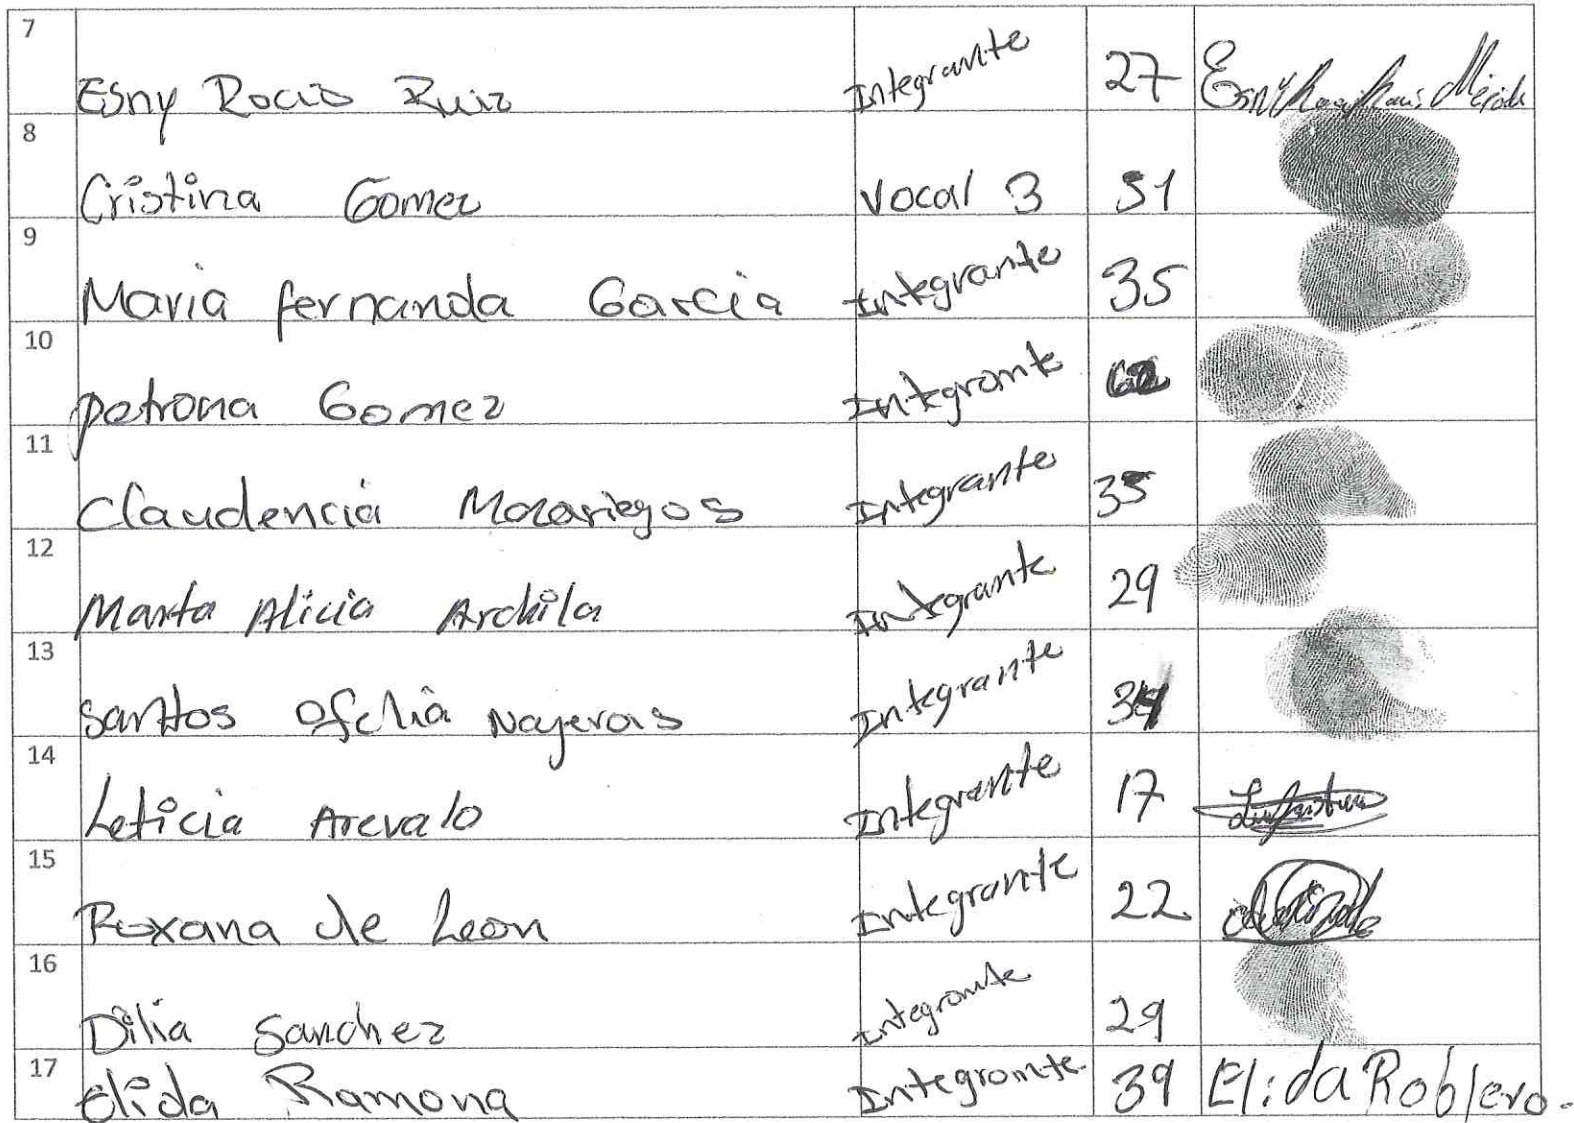 7 Esny Rocio Ruiz Integrante 27 Esny
8 Cristina Gomez Vocal 3 51
9 Maria fernanda Garcia Integrante 35
10 petrona Gomez Integrante 62
11 Claudencia Mazariegos Integrante 35
12 Marta Alicia Archila Integrante 29
13 Santos Ofelia Najeras Integrante 34
14 Leticia Arevalo Integrante 17
15 Roxana de Leon Integrante 22
16 Dilia Sanchez Integrante 29
17 Elida Ramona Integrante 39 Elida Roblero.